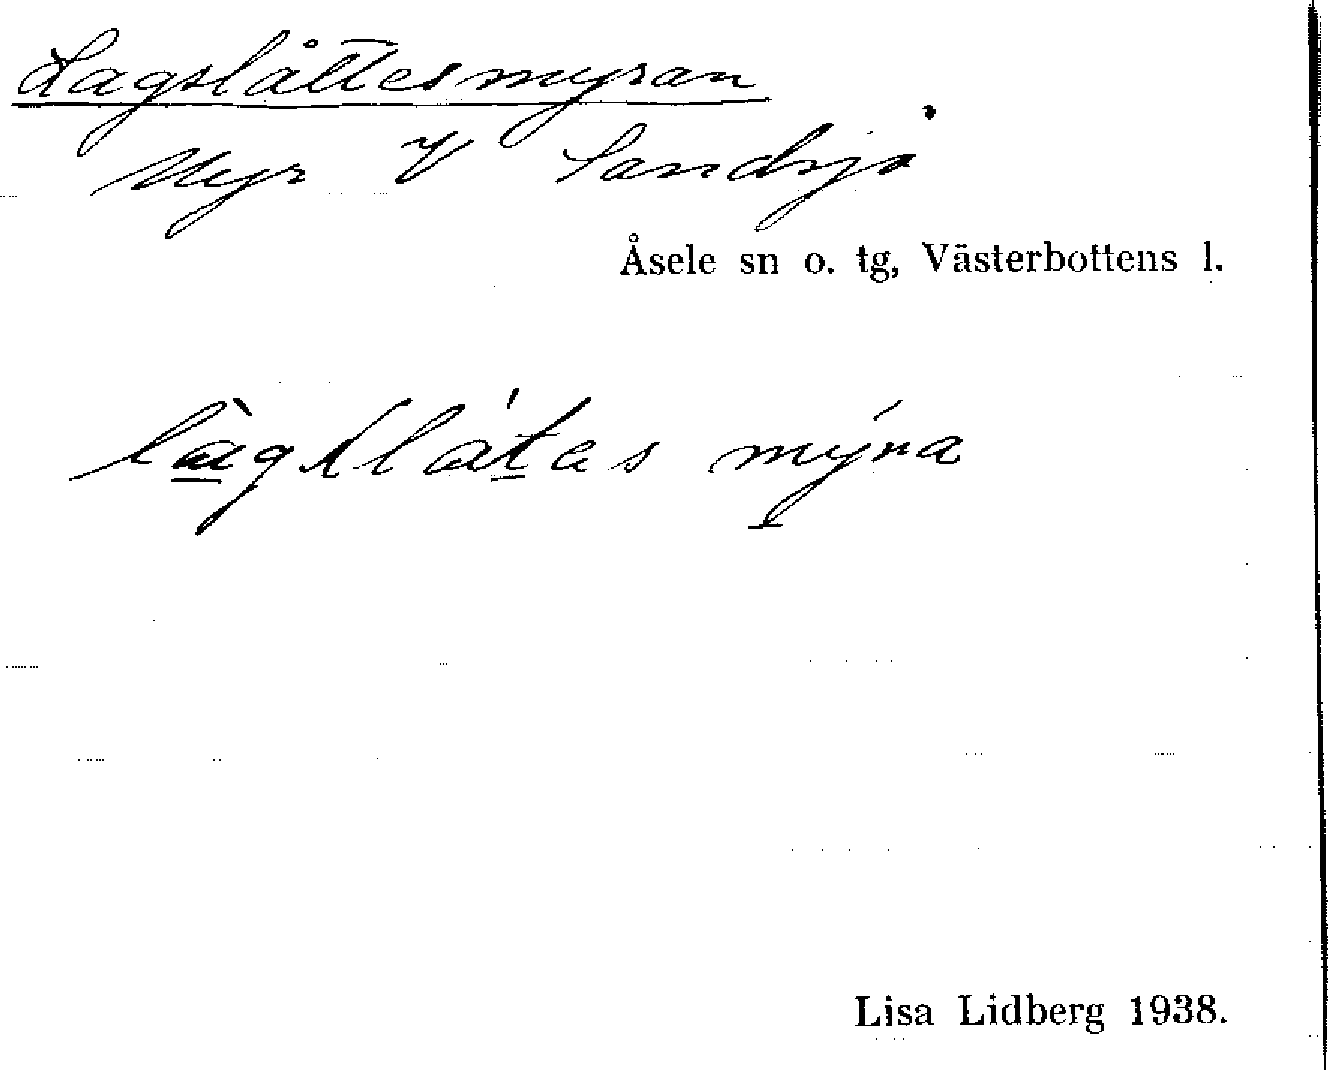 Lagslåttesmyran
Myr V Sandsjö
Åsele sn o. tg, Västerbottens l.
mýra
Lisa Lidberg 1938.